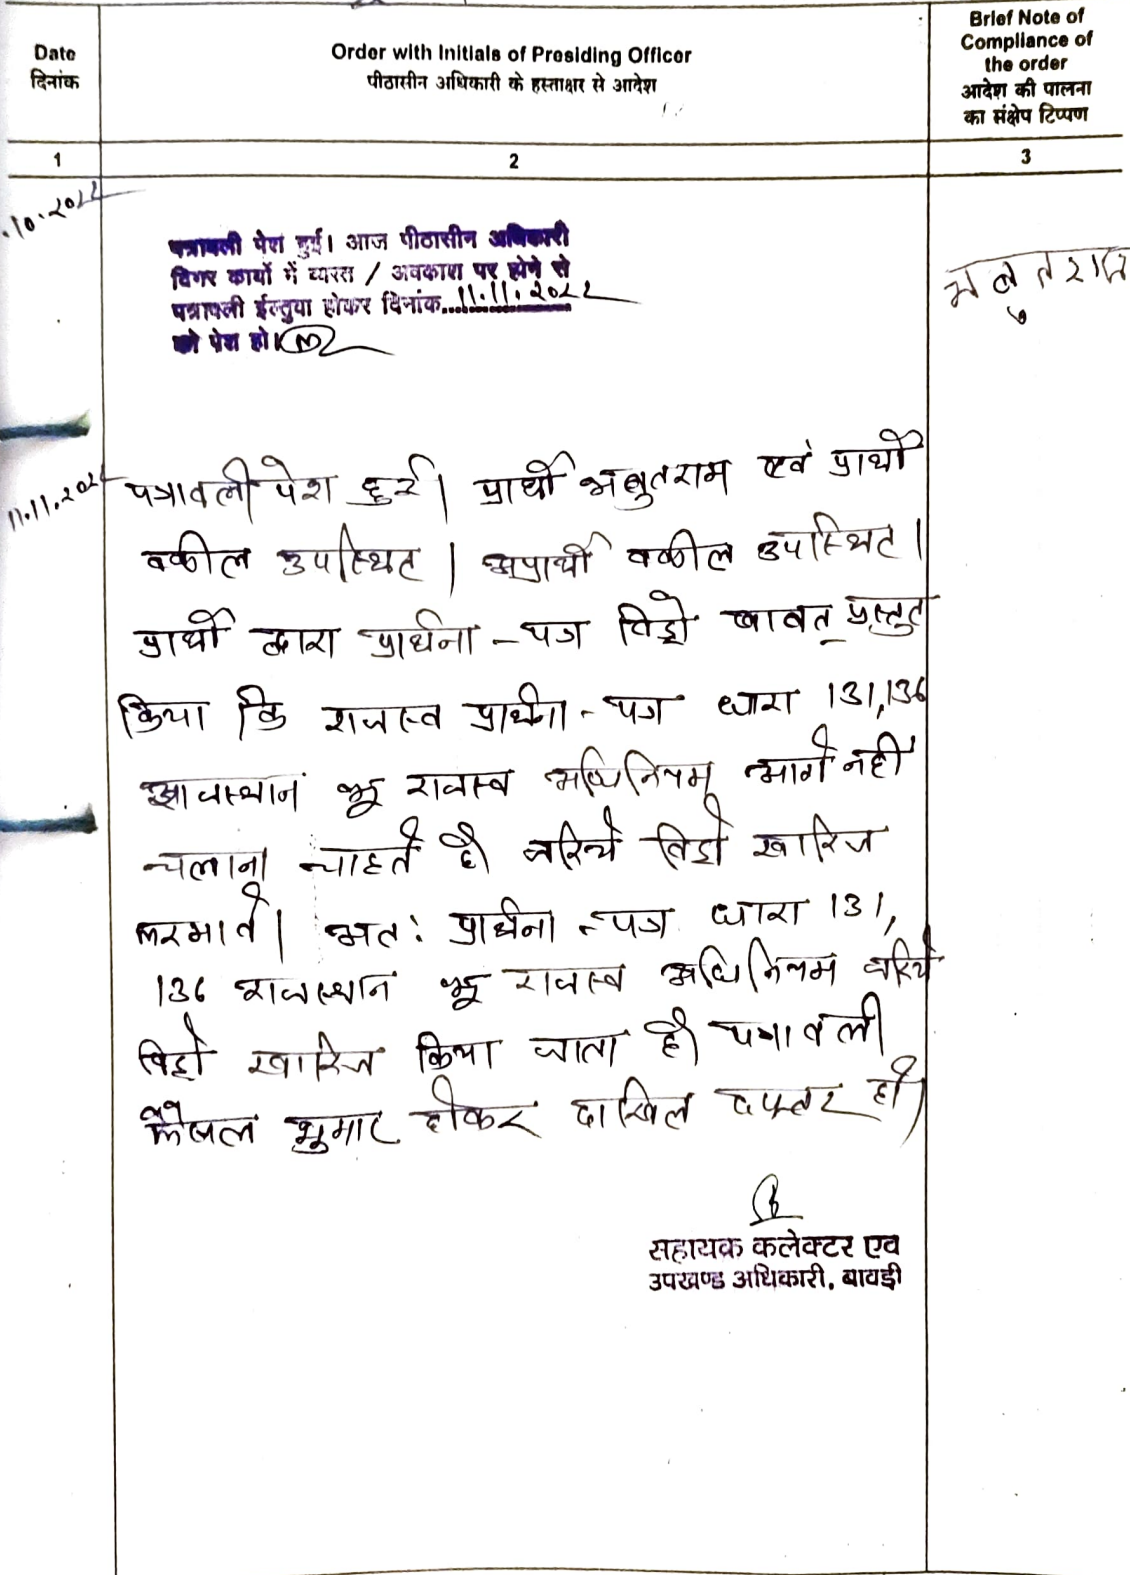 Date
दिनांक
Order with Initials of Presiding Officer
पीठासीन अधिकारी के हस्ताक्षर से आदेश
Brief Note of
Compliance of
the order
आदेश की पालना
का संक्षेप टिप्पण
1
2
3
.10.2022
पत्रावली पेश हुई। आज पीठासीन अधिकारी
दिगर कार्यो में व्यस्त / अवकाश पर होने से
पत्रावली ईल्तुवा होकर दिनांक...11.11.2022
को पेश हो।
भबुतराम
11.11.2022
पत्रावली पेश हुई। प्रार्थी भबुतराम एवं प्रार्थी
वकील उपस्थित। अप्रार्थी वकील उपस्थित।
प्रार्थी द्वारा प्रार्थना-पत्र विड्रो बाबत प्रस्तुत
किया कि राजस्व प्रार्थना-पत्र धारा 131,136
राजस्थान भू राजस्व अधिनियम आगे नहीं
चलाना चाहते है। जरिये विड्रो खारिज
फरमावे। अतः प्रार्थना-पत्र धारा 131,
136 राजस्थान भू राजस्व अधिनियम जरिये
विड्रो खारिज किया जाता है। पत्रावली
फैसल शुमार होकर दाखिल दफ्तर हो।
सहायक कलेक्टर एव
उपखण्ड अधिकारी, बावडी